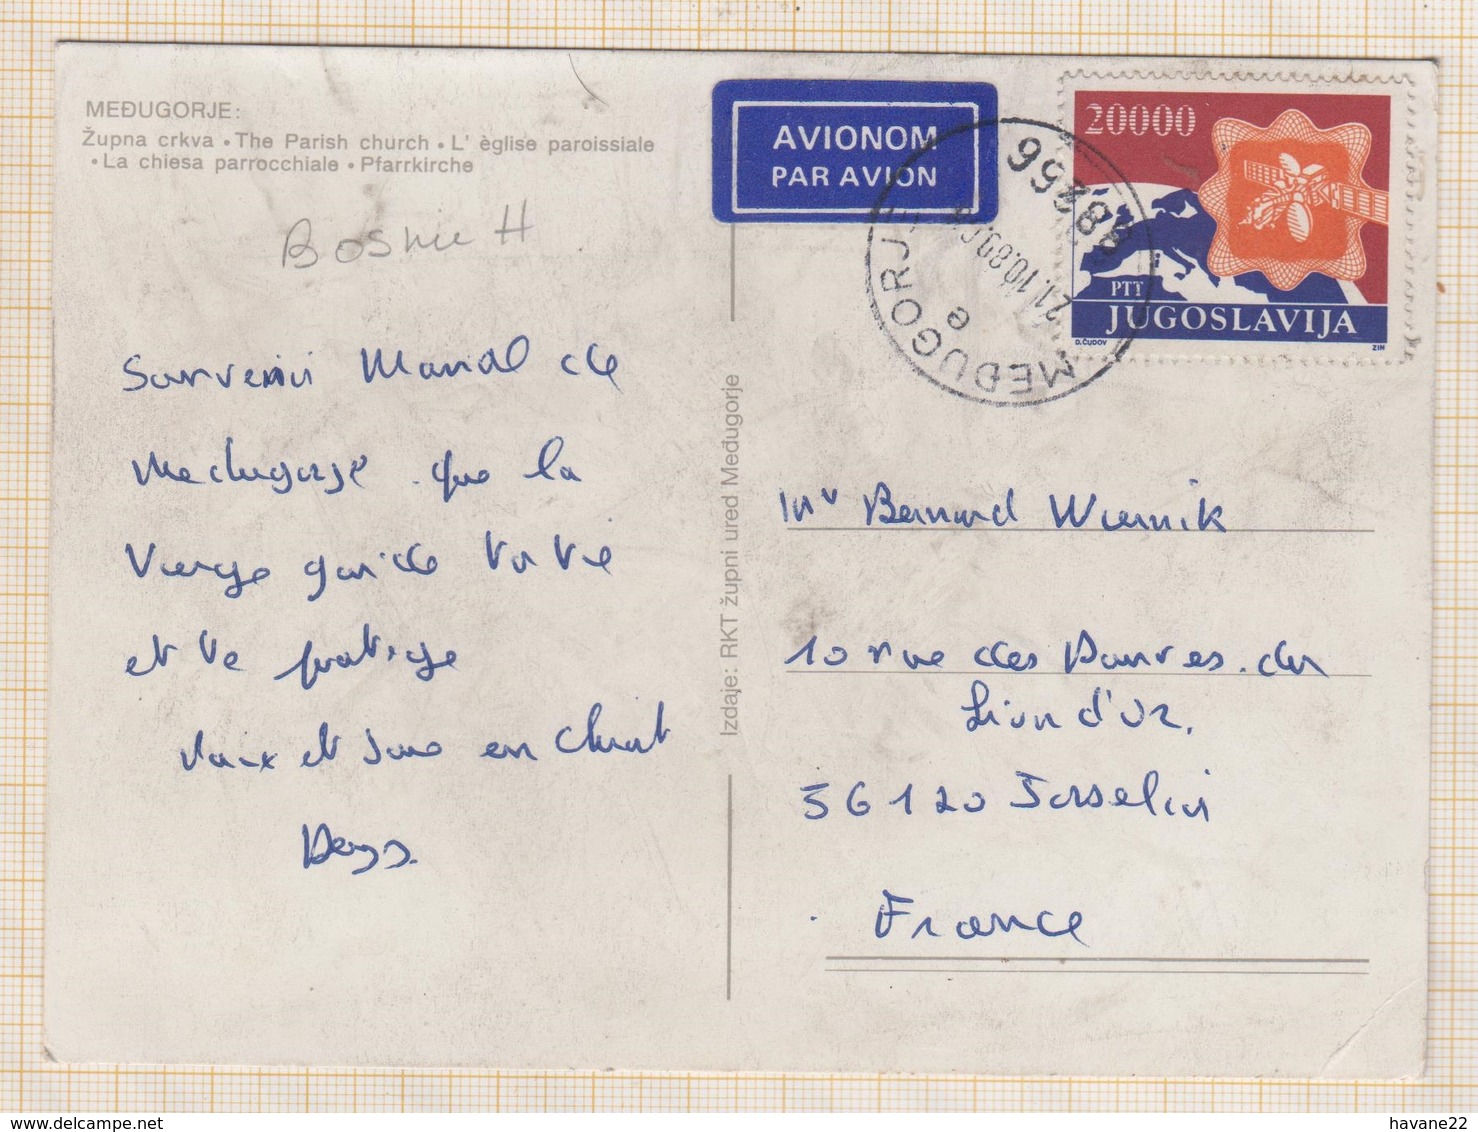 MEĐUGORJE:
Župna crkva • The Parish church • L' èglise paroissiale
• La chiesa parrocchiale • Pfarrkirche
Bosnie H
Souvenir Marial de
Medugorje. que la
Vierge garde ta vie
et te protège
Paix et Joie en Christ
Izdaje: RKT župni ured Međugorje
AVIONOM
PAR AVION
88266
21.10.89
MEĐUGORJE
e
20000
PTT
JUGOSLAVIJA
D.ČUDOV
ZIN
Mr Bernard Wiernik
10 rue des Douves. du
Lion d'Or.
56120 Josselin
France
havane22